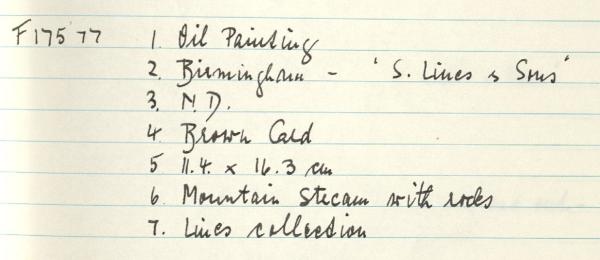 F175 77 1. Oil Painting
2. Birmingham - 'S. Lines & Sons'
3. N.D.
4 Brown Card
5 11.4. x 16.3 cm
6 Mountain stream with rocks
7. Lines collection